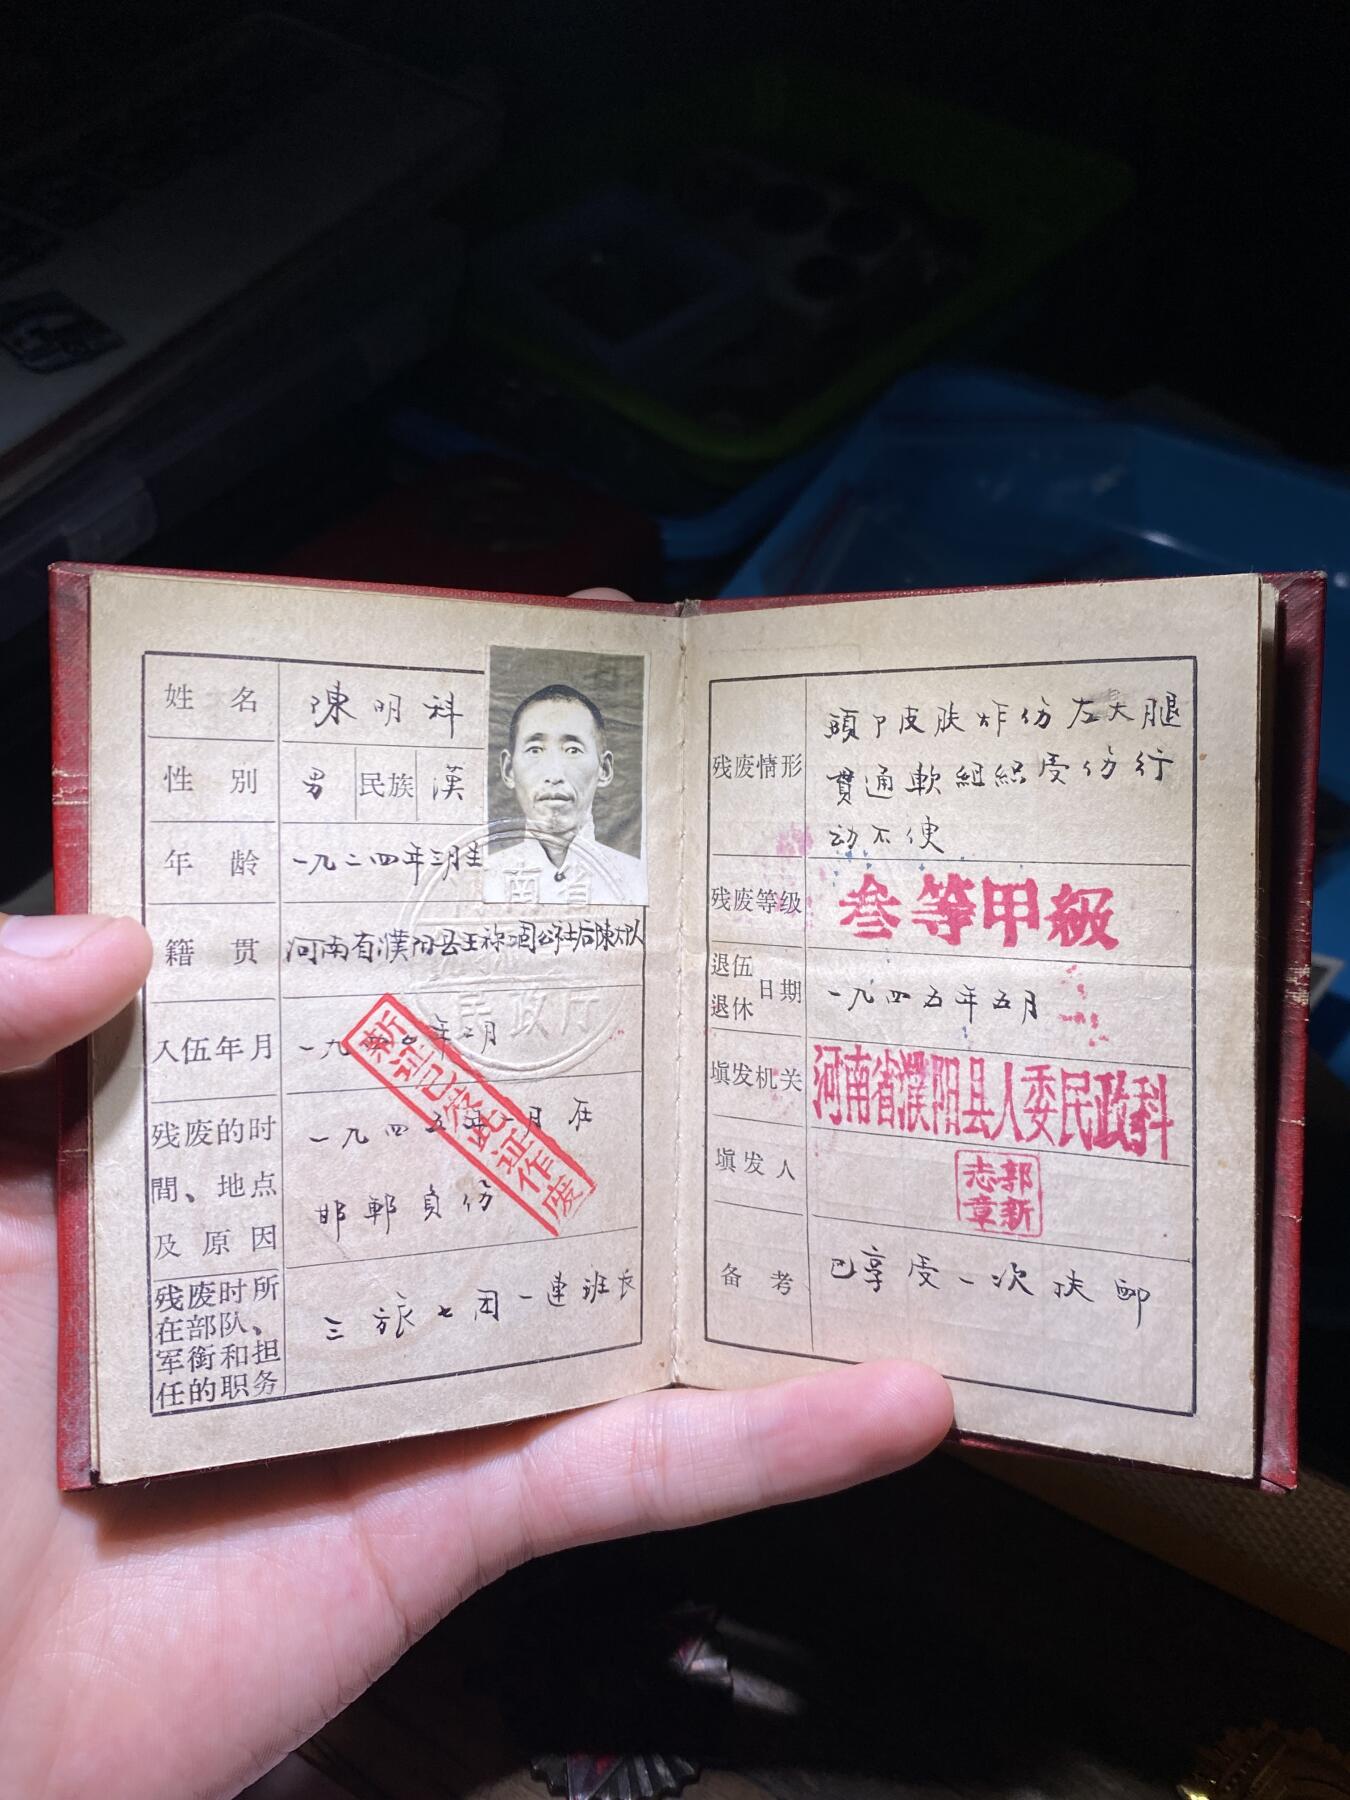 姓名 陳明科
性别 男 民族 漢
年龄 一九二四年三月生
籍贯 河南省濮阳县王称堌公社后陳大队
入伍年月 一九四〇年二月
残废的时
間、地点
及原因
一九四五年一月在
邯郸負伤
残废时所
在部队、
军衔和担
任的职务
三旅七团一連班长
河南省
民政厅
新证已发此证作废
残废情形
頭卩皮肤炸伤左大腿
貫通軟組織受伤行
动不便
残废等级 叁等甲級
退伍
退休
日期
一九四五年五月
填发机关 河南省濮阳县人委民政科
填发人 郭新志章
备考 已享受一次扶邺